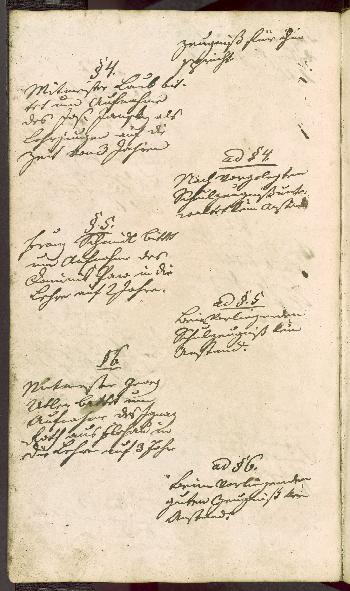 zeugniß für ihn
spricht.
§ 4.
Mitmeister Laub bit-
tet um Aufnahme
des Jos. als
Lehrjungen auf die
Zeit von 3 Jahren
ad § 4.
Nach vorgelegten
Schulzeugniß
waltet kein Anstand
§ 5.
Franz Schmidt bittet
um Aufnahme des
in die
Lehre auf 3 Jahre.
ad § 5
Beim vorliegenden
Schulzeugniß kein
Anstand.
§ 6
Mitmeister Georg
bittet um
Aufnahme des Ignaz
aus in
die Lehre auf 3 Jahr
ad § 6.
Beim vorliegenden
guten Zeugniß kein
Anstand.